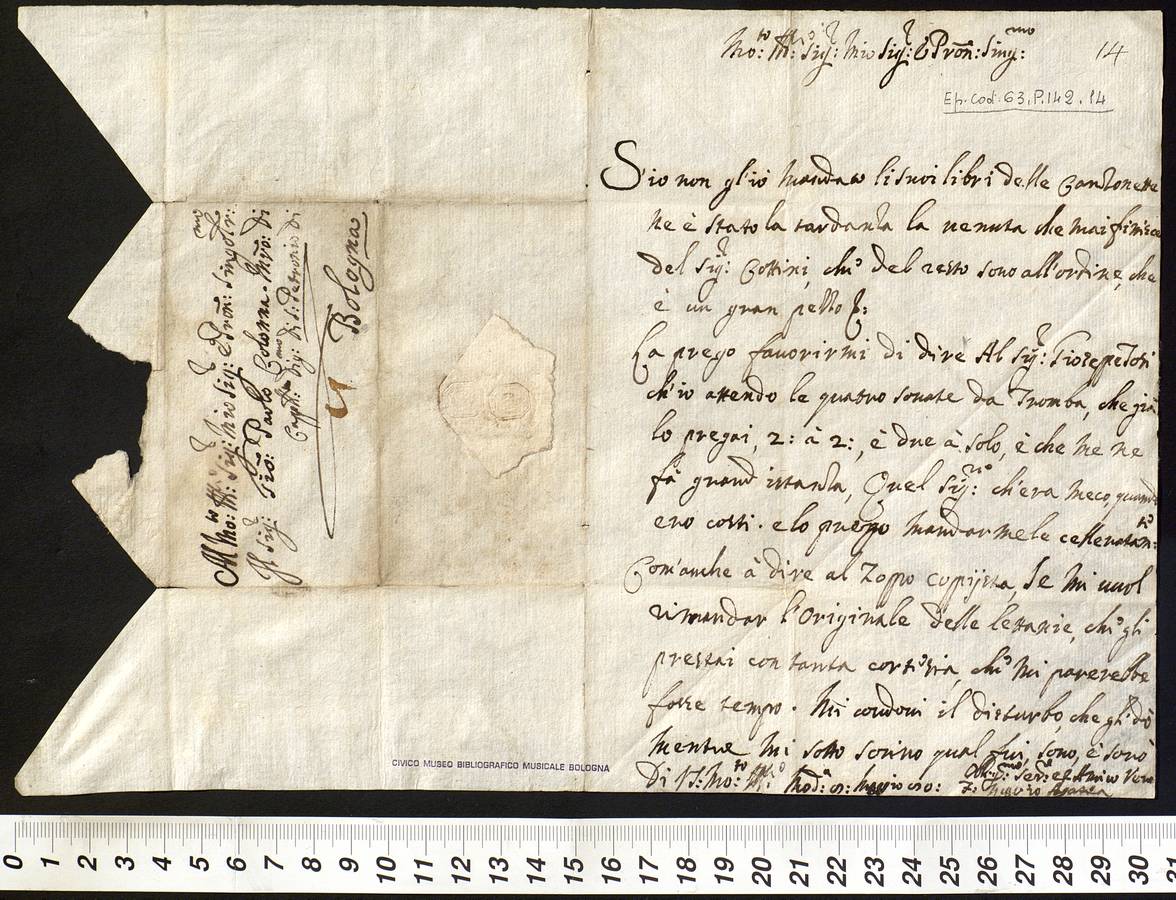 Mo:to Ill:o Sig:r mio Sig:r e Pron: Sing:mo
14
Ep. Cod. 63, P.142.14
S'io non gl'iò mandato li suoi libri delle Canzonette
ne è stato la tardanza la venuta che mai finisce
del Sig:r Cottini, ch' del resto sono all'ordine, che
è un gran pezzo
La prego favorirmi di dire Al Sig:r Gioseppe
ch'io attendo le quatro sonate da Tromba, che già
lo pregai, 2: à 2:, è due à solo, è che me ne
fà grand istanza, Quel Sig:re ch'era meco, quand
ero costì. e lo prego mandarmele celleratam:te
Com'anche à dire al Zoppo copista, se mi vuol
rimandar l'Originale delle letanie, ch' gli
prestai con tanta cortesia, ch' mi parerebbe
fosse tempo. Mi condoni il disturbo, che gli dò
mentre mi sotto scrivo qual fui, sono, è sarò
Di V.S: Mo:to Ill:
Al Mo:to Ill: Sig:r Mio Sig: e Pron: Singolr:mo
Il Sig:r Gio: Paolo Colonna Mro: di
Capll: Dig:mo di S: Petronio di
Bologna
CIVICO MUSEO BIBLIOGRAFICO MUSICALE BOLOGNA
0 1 2 3 4 5 6 7 8 9 10 11 12 13 14 15 16 17 18 19 20 21 22 23 24 25 26 27 28 29 30 31